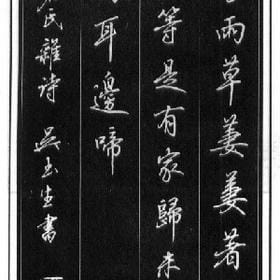 雨草萋萋著
等是有家歸未
耳邊啼
氏雜詩 吳玉生書